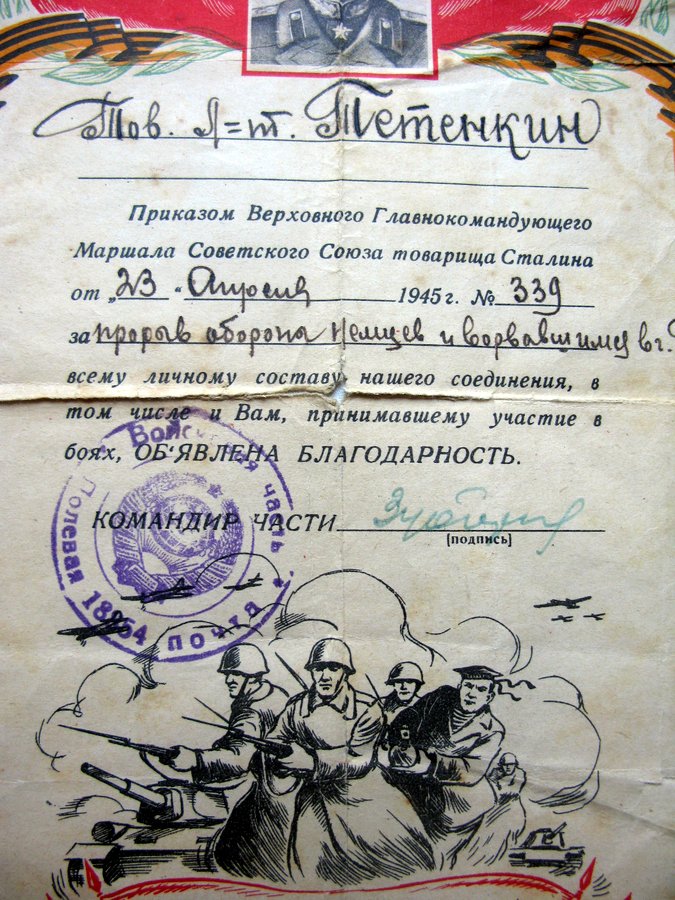 Тов. Л=т. Тетенкин
Приказом Верховного Главнокомандующего
Маршала Советского Союза товарища Сталина
от „23“ Апреля 1945 г. № 339
за прорыв обороны немцев и ворвавшимся в г.
всему личному составу нашего соединения, в
том числе и Вам, принимавшему участие в
боях, ОБ‘ЯВЛЕНА БЛАГОДАРНОСТЬ.
КОМАНДИР ЧАСТИ
[подпись]
Войсковая часть
Полевая почта